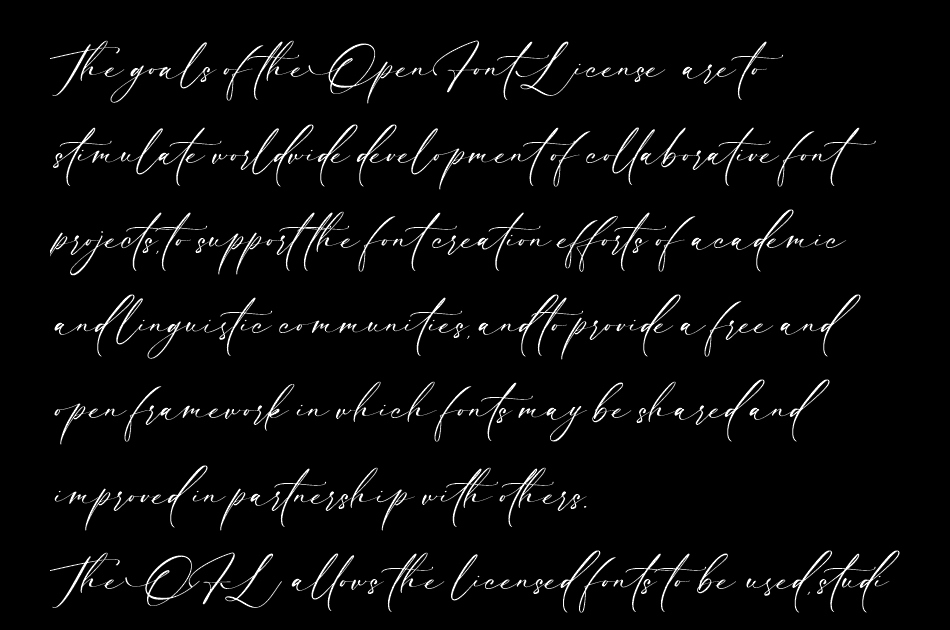 The goals of the Open Font License are to
stimulate worldwide development of collaborative font
projects, to support the font creation efforts of academic
and linguistic communities, and to provide a free and
open framework in which fonts may be shared and
improved in partnership with others.
The OFL allows the licensed fonts to be used, studi